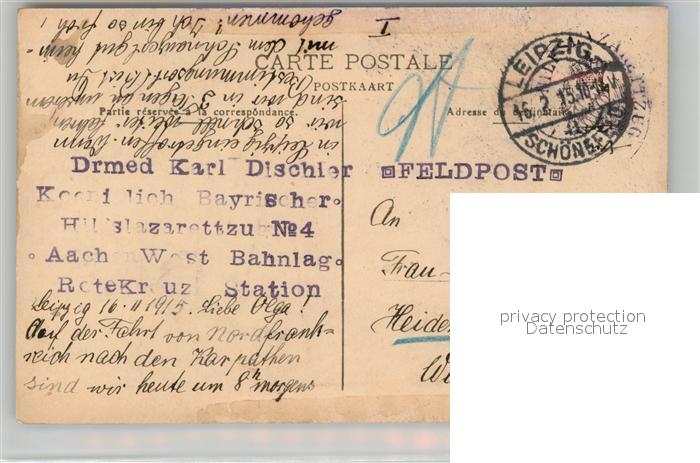 CARTE POSTALE
POSTKAART
Partie réservée à la correspondance.
Adresse de
LEIPZIG
16.2.15.10-11
SCHÖNEFELD
I
Drmed Karl Dischler
¤FELDPOST¤
Koeniglich Bayrischer.
Hilfslazarettzug №4
Aachen West Bahnlag.
RoteKreuz Station
An
Frau
Heiden
Leipzig 16 II 1915. Liebe Olga!
Auf der Fahrt von Nordfrank-
reich nach den Karpathen
sind wir heute um 8h morgens
in Leipzig eingetroffen. Wenn
wir so schnell weiter fahren
sind wir in 3 Tagen an unserem
Bestimmungsort. Bist Du
mit dem Schnauzerl gut heim-
gekommen? Ich bin so froh
privacy protection
Datenschutz